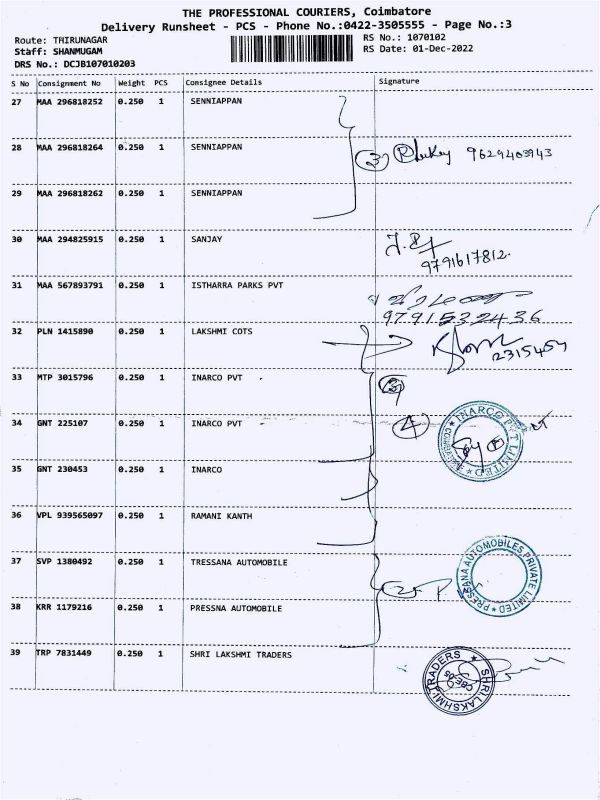 THE PROFESSIONAL COURIERS, Coimbatore
Delivery Runsheet - PCS - Phone No.:0422-3505555 - Page No.:3
Route: THIRUNAGAR
Staff: SHANMUGAM
DRS No.: DCJB107010203
RS No.: 1070102
RS Date: 01-Dec-2022
S No Consignment No Weight PCS Consignee Details Signature
27 MAA 296818252 0.250 1 SENNIAPPAN
28 MAA 296818264 0.250 1 SENNIAPPAN 3 9629403943
29 MAA 296818262 0.250 1 SENNIAPPAN
30 MAA 294825915 0.250 1 SANJAY
9791617812.
31 MAA 567893791 0.250 1 ISTHARRA PARKS PVT
9791532436
32 PLN 1415890 0.250 1 LAKSHMI COTS
2315454
33 MTP 3015796 0.250 1 INARCO PVT
34 GNT 225107 0.250 1 INARCO PVT 4 INARCO PVT LIMITED
35 GNT 230453 0.250 1 INARCO
36 VPL 939565097 0.250 1 RAMANI KANTH
37 SVP 1380492 0.250 1 TRESSANA AUTOMOBILE
PRESSANA AUTOMOBILES PRIVATE LIMITED
38 KRR 1179216 0.250 1 PRESSNA AUTOMOBILE
39 TRP 7831449 0.250 1 SHRI LAKSHMI TRADERS
SHRI LAKSHMI TRADERS